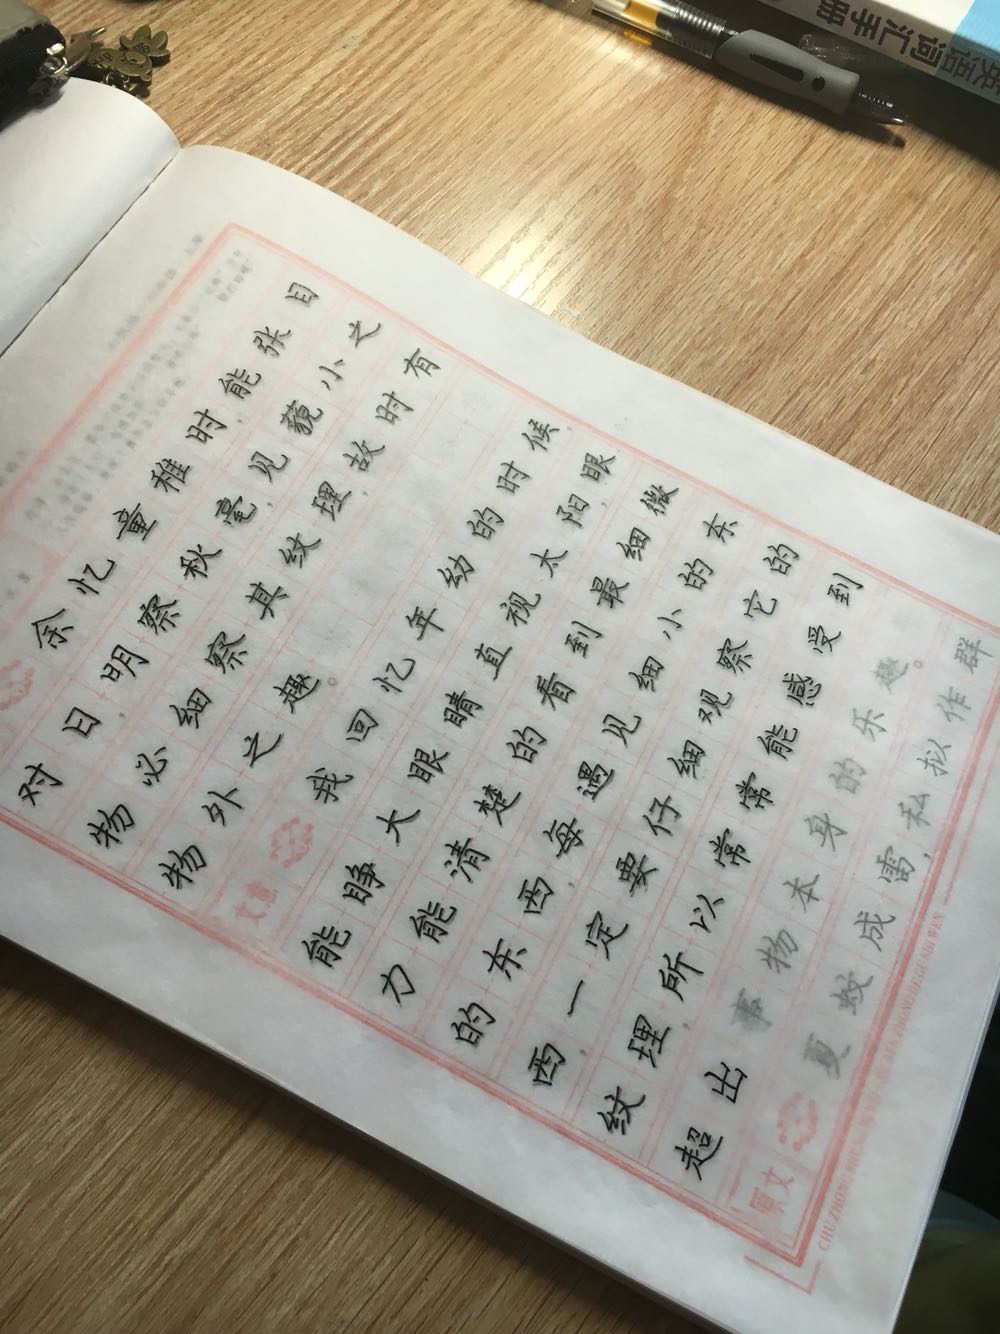 余忆童稚时,能张目
对日,明察秋毫,见藐小之
物必细察其纹理,故时有
物外之趣。
文意
我回忆年幼的时候,
能睁大眼睛直视太阳,眼
力能清楚的看到最细微
的东西,每遇见细小的东
西,一定要仔细观察它的
纹理,所以常常能感受到
超出事物本身的乐趣。
原文
夏蚊成雷,私拟作群
CHU ZHONG GU SHI WEN
英语
词汇手册